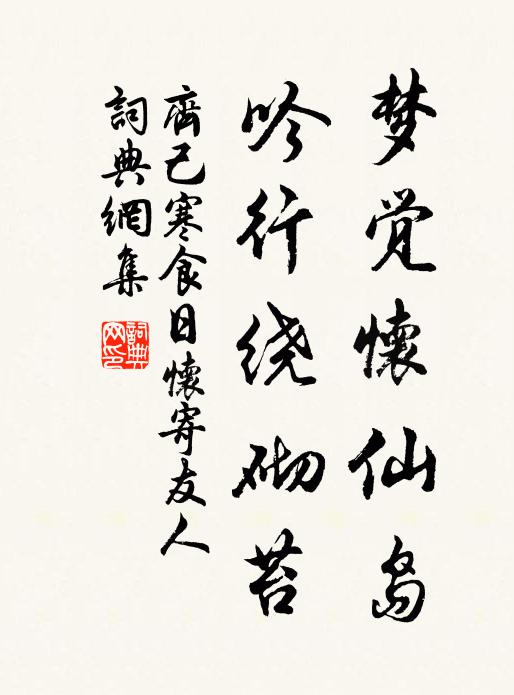 梦觉懷仙岛
吟行绕砌苔
齊己寒食日懷寄友人
詞典網集
詞典网印